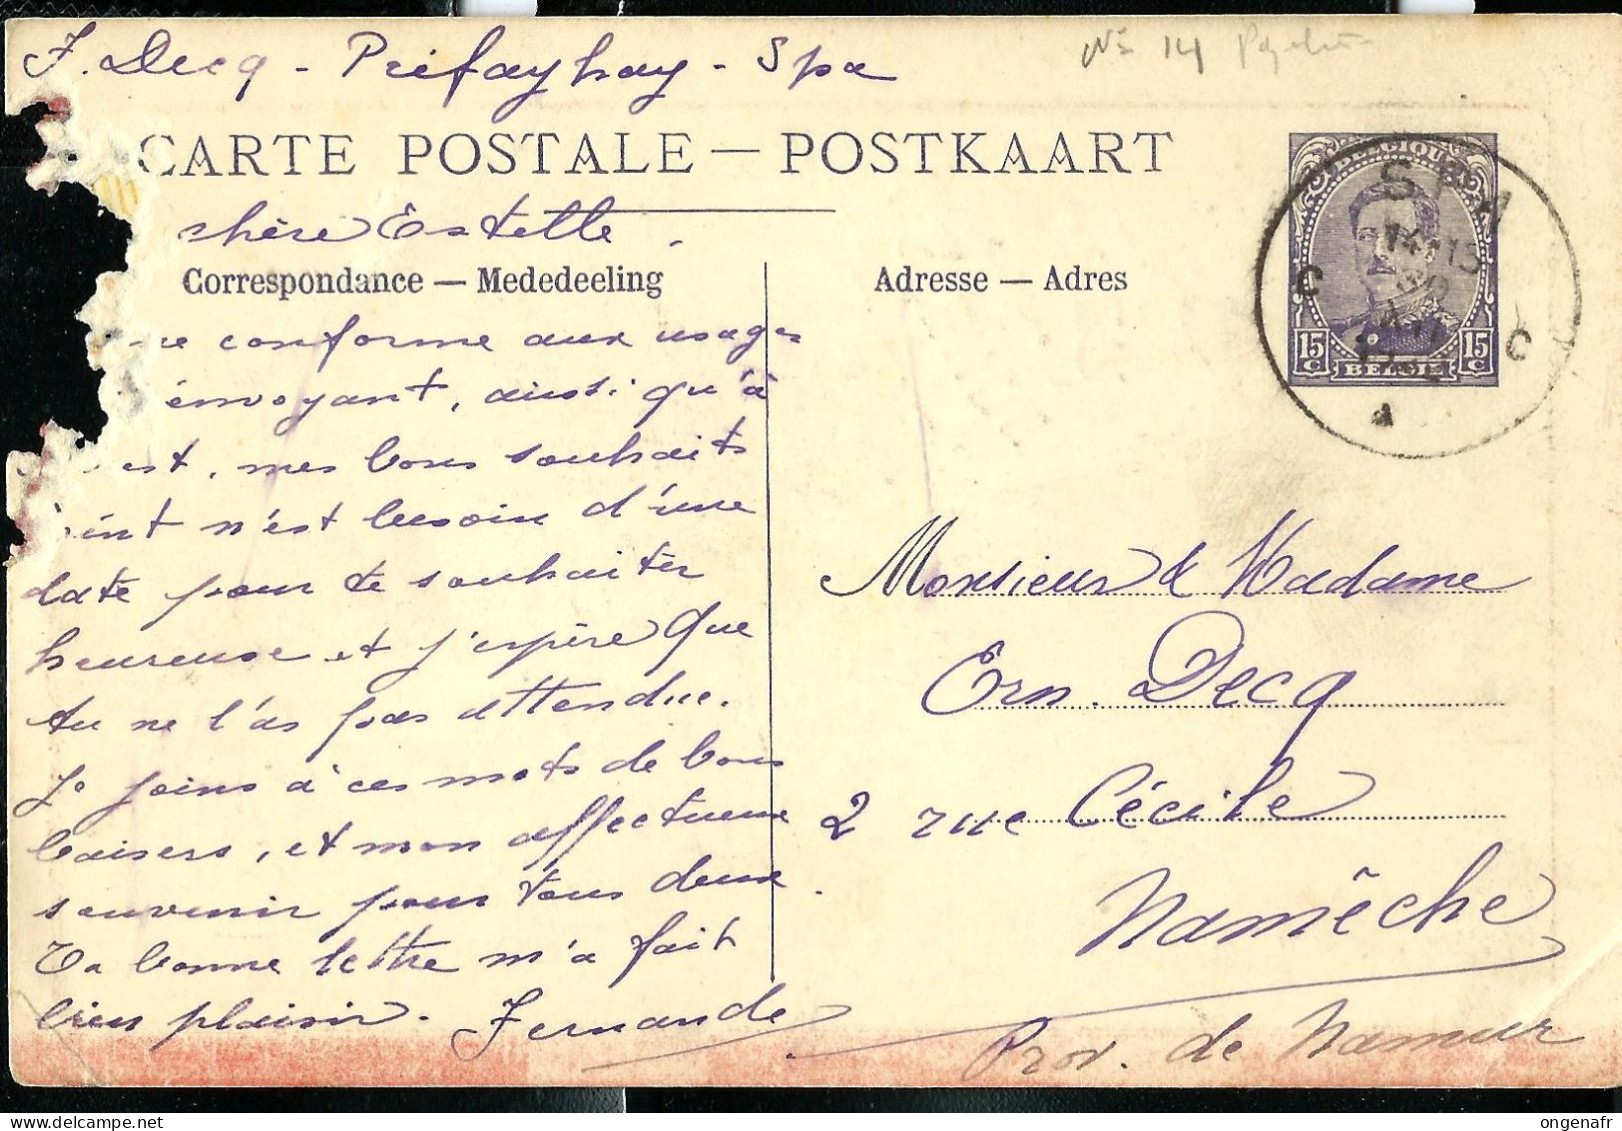 F. Decq - Préfayhay - Spa
N° 14
CARTE POSTALE — POSTKAART
BELGIQUE
SPA
14-15
C C
15 C 15 C
BELGIË
A
chère Estelle.
Correspondance — Mededeeling
Adresse — Adres
me conforme aux usages
envoyant, ainsi qu'à
est, mes bons souhaits
oint n'est besoin d'une
date pour te souhaiter
heureuse et j'espère que
tu ne l'as pas attendue.
Je joins à ces mots de bons
baisers, et mon affectueux
souvenir pour tous deux.
Ta bonne lettre m'a fait
bien plaisir. Fernande
Monsieur & Madame
Ern. Decq
2 rue Cécile
Namêche
Prov. de Namur
ongenafr